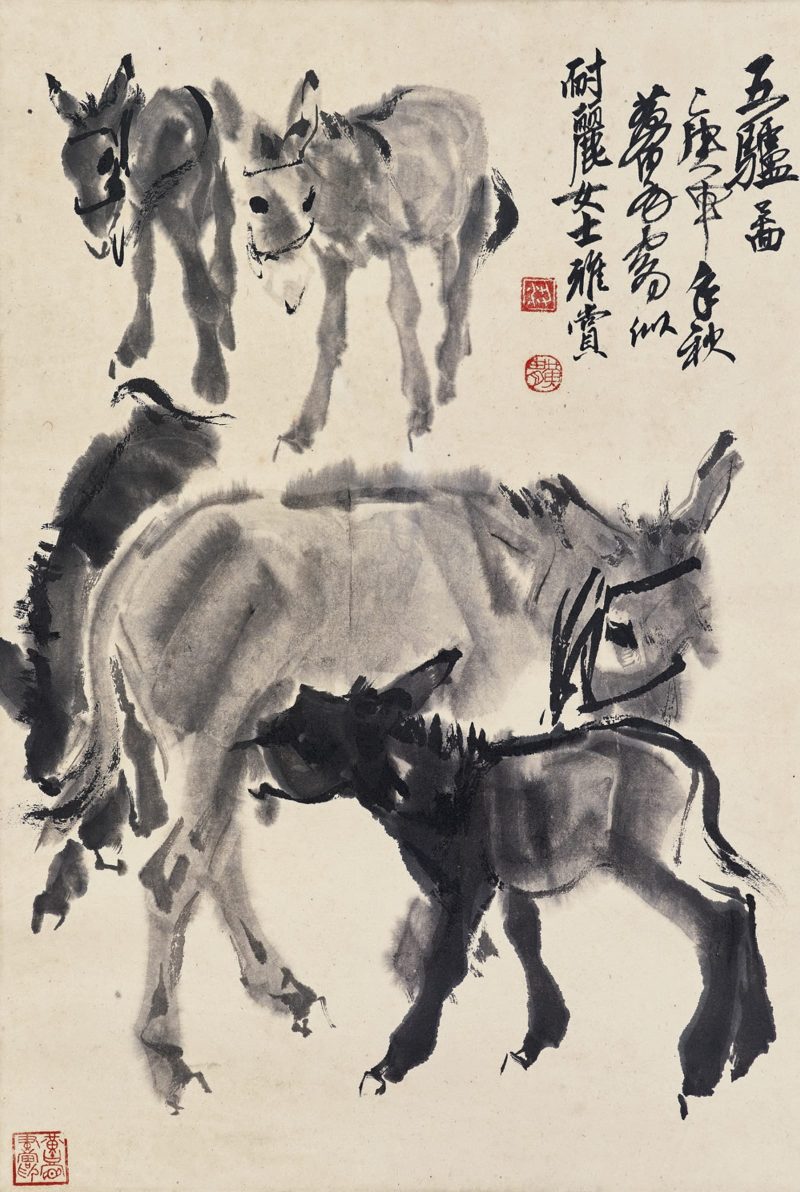 五驢圖
庚申年秋
黃胄寫似
耐麗女士雅賞
黃胄